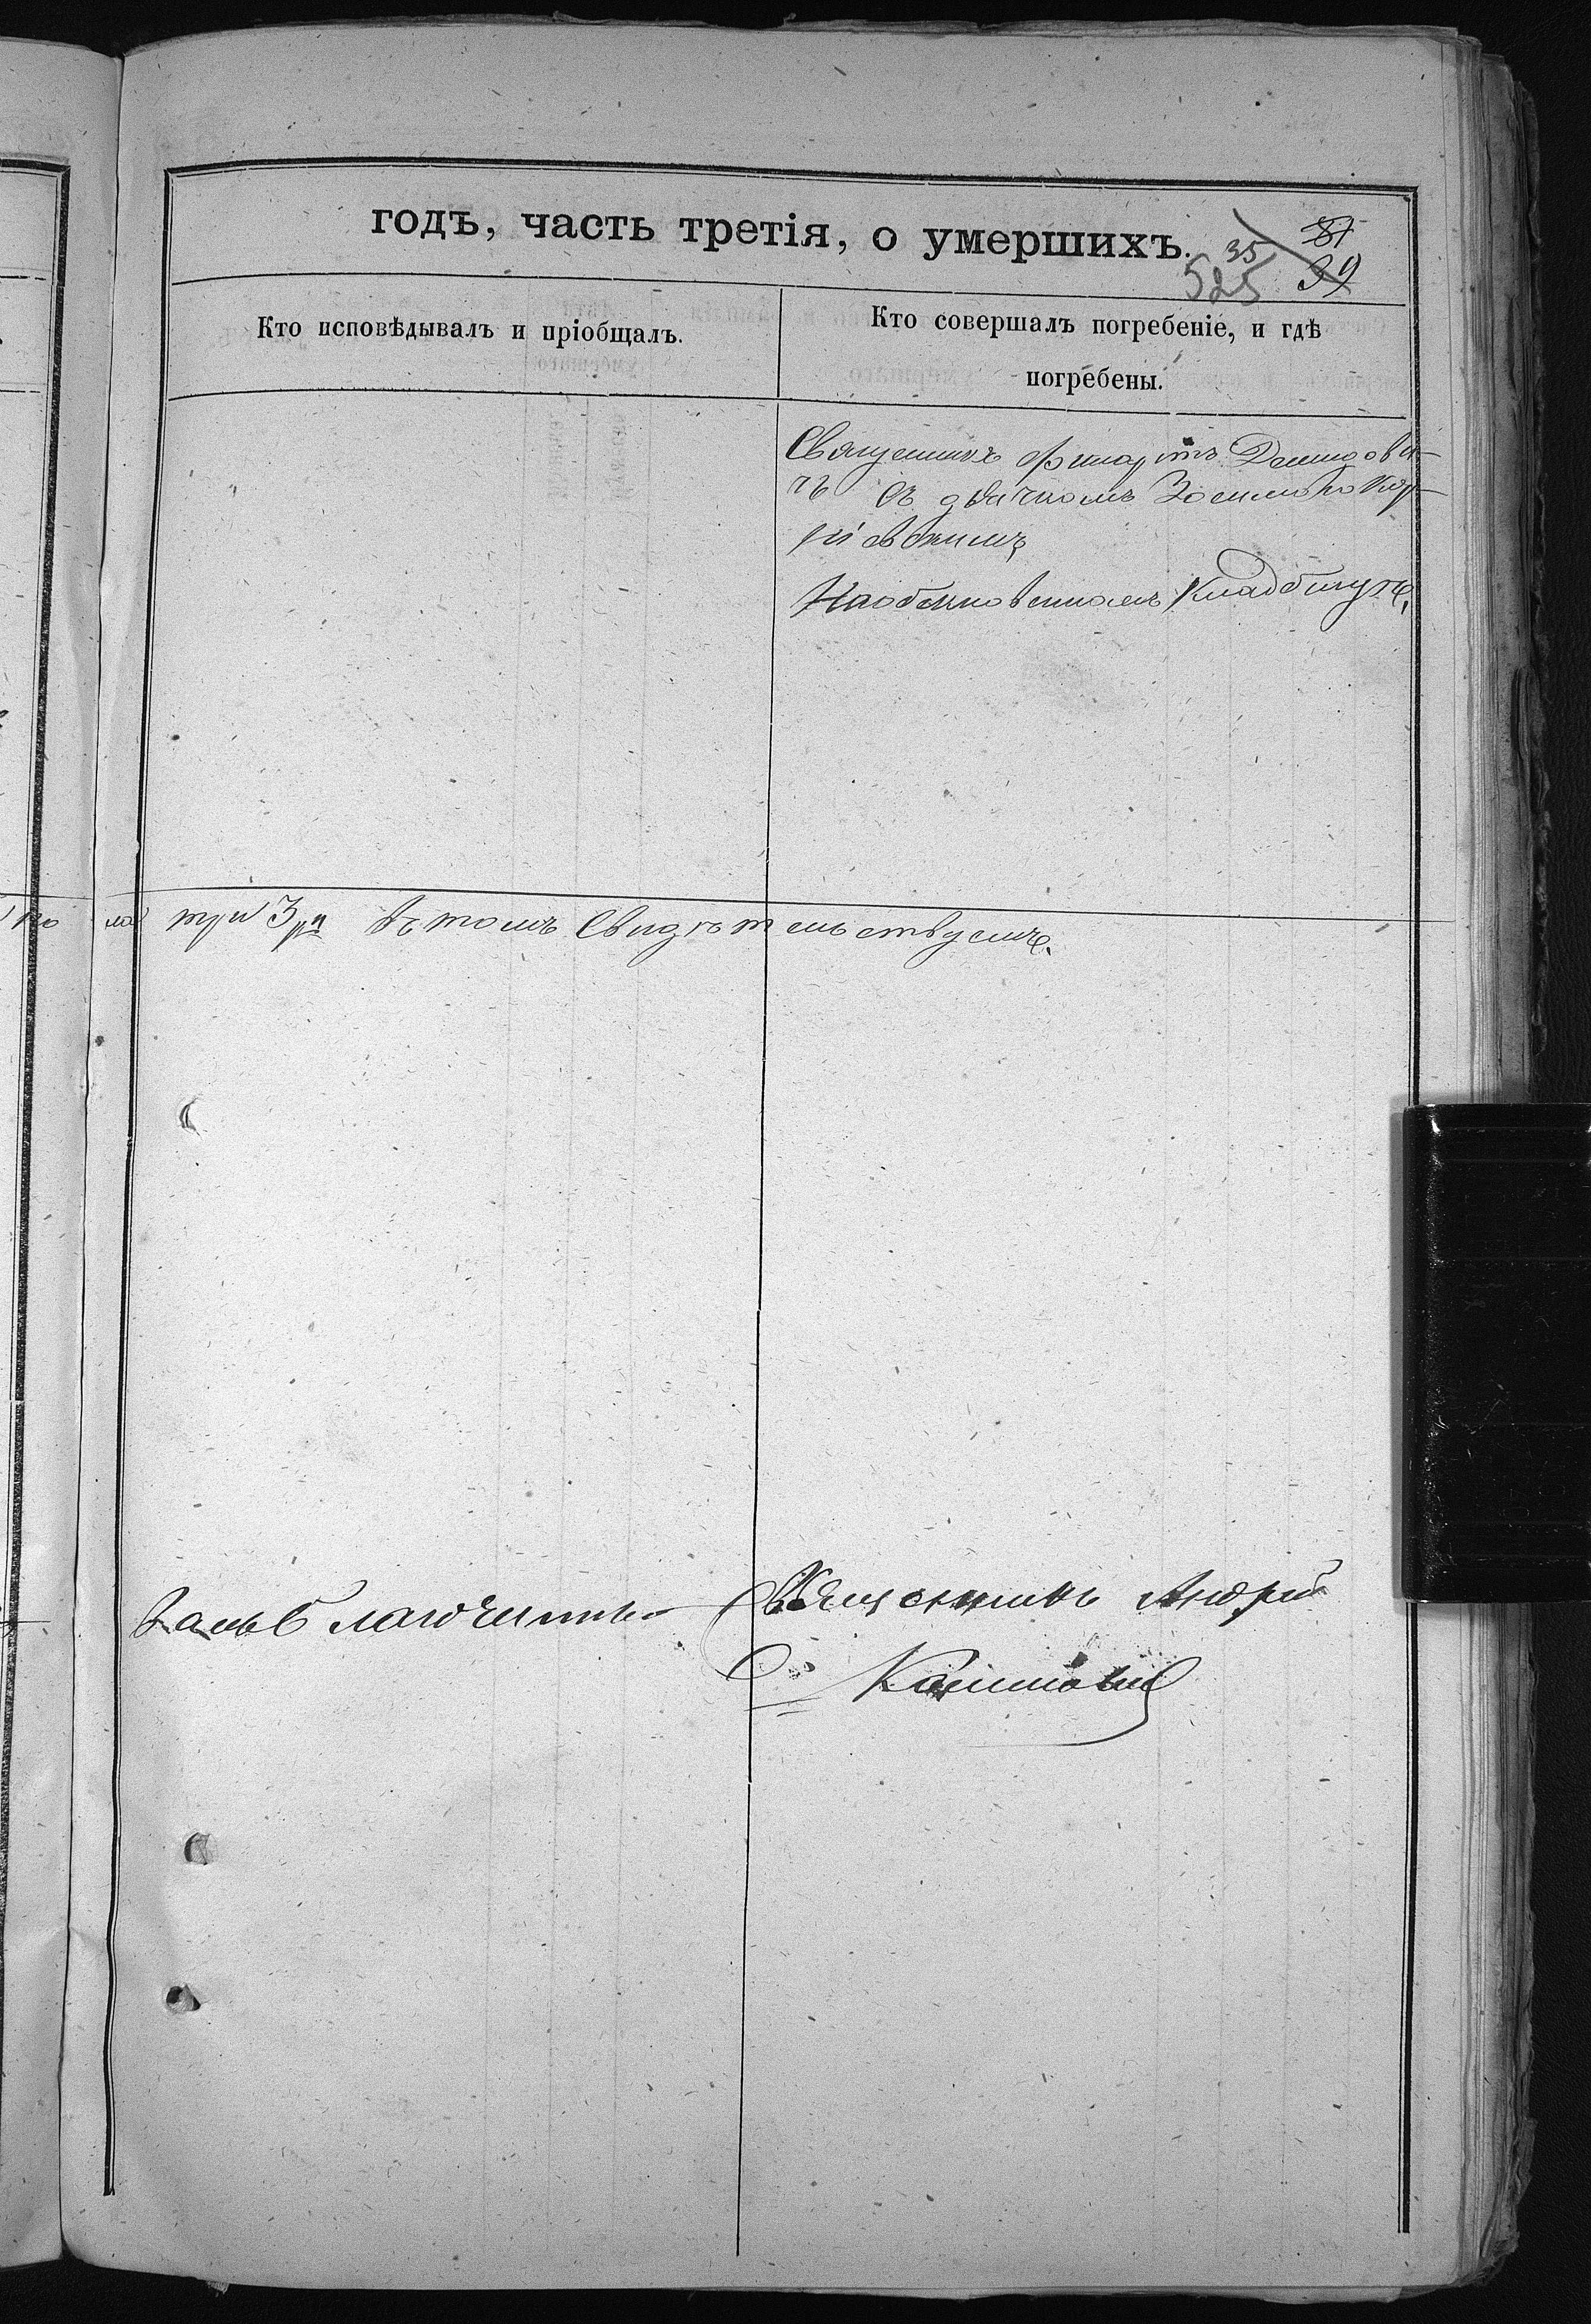 годъ, часть третія, о умершихъ.
35
525
39
Кто исповѣдывалъ и пріобщалъ.
Кто совершалъ погребеніе, и гдѣ
погребены.
Священникъ Филаретъ Демидови-
чъ съ дьячкомъ
На обыкновенномъ Кладбищѣ,
три 3 въ томъ Свидѣтельствуемъ.
Благочинный
Священникъ Андрей